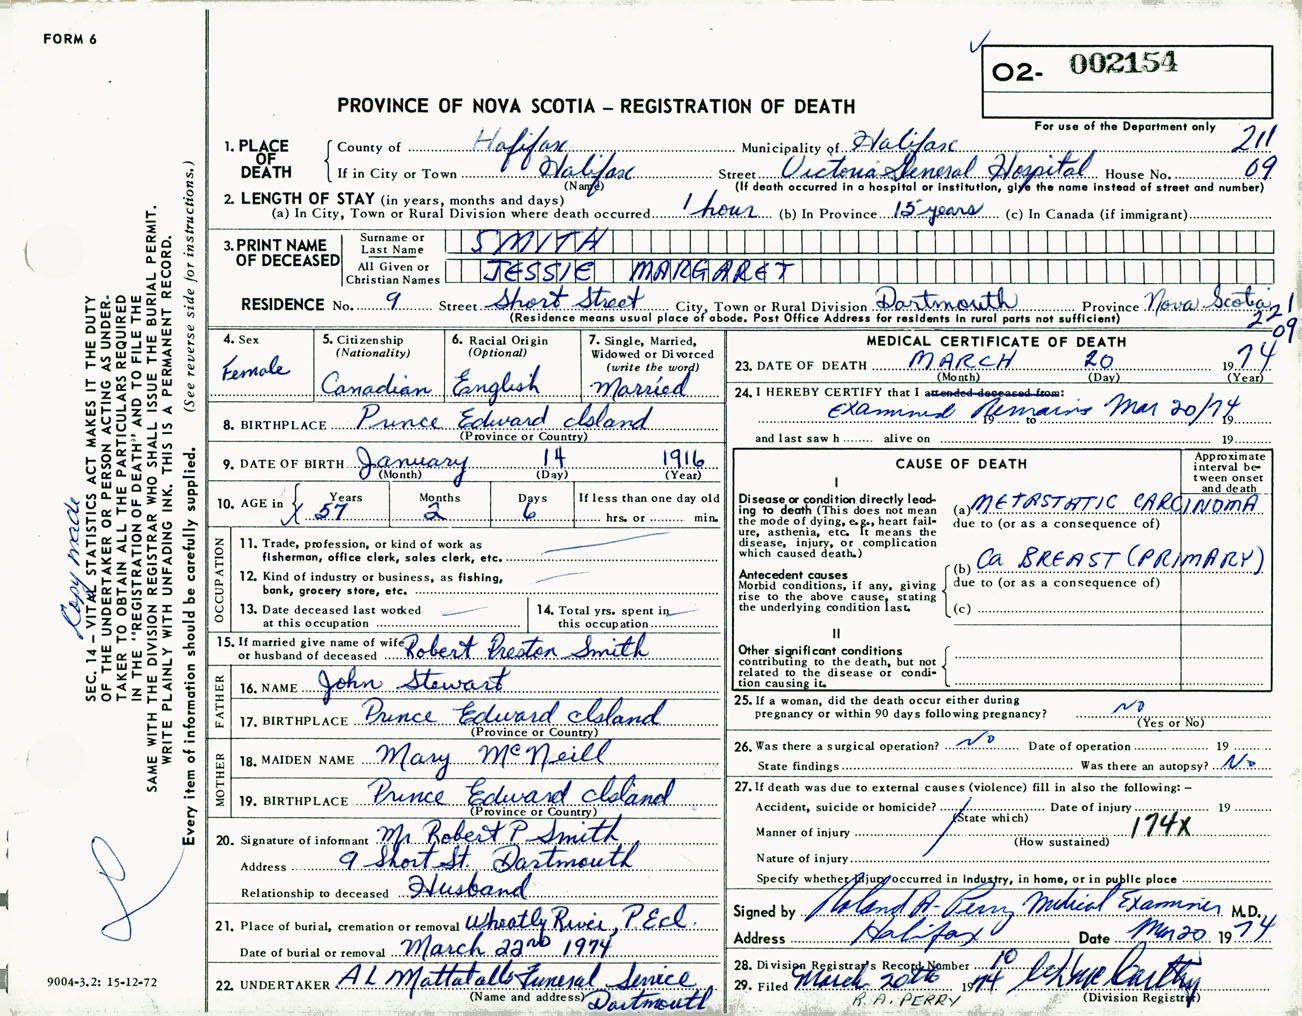 FORM 6
O2- 002154
PROVINCE OF NOVA SCOTIA – REGISTRATION OF DEATH
For use of the Department only
211
1. PLACE OF DEATH
County of Halifax Municipality of Halifax
If in City or Town Halifax Street Victoria General Hospital House No. 09
(Name) (If death occurred in a hospital or institution, give the name instead of street and number)
2. LENGTH OF STAY (in years, months and days)
(a) In City, Town or Rural Division where death occurred 1 hour (b) In Province 15 years (c) In Canada (if immigrant)
3. PRINT NAME OF DECEASED
Surname or Last Name SMITH
All Given or Christian Names JESSIE MARGARET
RESIDENCE No. 9 Street Short Street City, Town or Rural Division Dartmouth Province Nova Scotia
(Residence means usual place of abode. Post Office Address for residents in rural parts not sufficient)
221
09
4. Sex Female
5. Citizenship (Nationality) Canadian
6. Racial Origin (Optional) English
7. Single, Married, Widowed or Divorced (write the word) Married
8. BIRTHPLACE Prince Edward Island
(Province or Country)
9. DATE OF BIRTH January 14 1916
(Month) (Day) (Year)
10. AGE in Years 57 Months 2 Days 6 If less than one day old hrs. or min.
OCCUPATION
11. Trade, profession, or kind of work as fisherman, office clerk, sales clerk, etc.
12. Kind of industry or business, as fishing, bank, grocery store, etc.
13. Date deceased last worked at this occupation
14. Total yrs. spent in this occupation
15. If married give name of wife or husband of deceased Robert Preston Smith
FATHER
16. NAME John Stewart
17. BIRTHPLACE Prince Edward Island
(Province or Country)
MOTHER
18. MAIDEN NAME Mary McNeill
19. BIRTHPLACE Prince Edward Island
(Province or Country)
20. Signature of informant Mr Robert P Smith
Address 9 Short St. Dartmouth
Relationship to deceased Husband
21. Place of burial, cremation or removal Wheatly River, P.E.I.
Date of burial or removal March 22nd 1974
22. UNDERTAKER A L Mattatall Funeral Service
(Name and address) Dartmouth
MEDICAL CERTIFICATE OF DEATH
23. DATE OF DEATH MARCH 20 1974
(Month) (Day) (Year)
24. I HEREBY CERTIFY that I attended deceased from:
Examined Remains Mar 20/74
19 to 19
and last saw h alive on 19
CAUSE OF DEATH
Approximate interval between onset and death
I
Disease or condition directly leading to death (This does not mean the mode of dying, e.g., heart failure, asthenia, etc. It means the disease, injury, or complication which caused death.)
(a) METASTATIC CARCINOMA
due to (or as a consequence of)
Antecedent causes
Morbid conditions, if any, giving rise to the above cause, stating the underlying condition last.
(b) Ca BREAST (PRIMARY)
due to (or as a consequence of)
(c)
II
Other significant conditions contributing to the death, but not related to the disease or condition causing it.
25. If a woman, did the death occur either during pregnancy or within 90 days following pregnancy? No
(Yes or No)
26. Was there a surgical operation? No Date of operation 19
State findings Was there an autopsy? No
27. If death was due to external causes (violence) fill in also the following: –
Accident, suicide or homicide? Date of injury 19
(State which)
Manner of injury 174X
(How sustained)
Nature of injury
Specify whether injury occurred in industry, in home, or in public place
Signed by Roland A. Perry Medical Examiner M.D.
Address Halifax Date Mar 20 1974
28. Division Registrar's Record Number 10
29. Filed March 20th 1974
R.A. PERRY (Division Registrar)
Copy made
SEC. 14 – VITAL STATISTICS ACT MAKES IT THE DUTY
OF THE UNDERTAKER OR PERSON ACTING AS UNDER-
TAKER TO OBTAIN ALL THE PARTICULARS REQUIRED
IN THE "REGISTRATION OF DEATH" AND TO FILE THE
SAME WITH THE DIVISION REGISTRAR WHO SHALL ISSUE THE BURIAL PERMIT.
WRITE PLAINLY WITH UNFADING INK. THIS IS A PERMANENT RECORD.
Every item of information should be carefully supplied. (See reverse side for instructions.)
9004-3.2: 15-12-72